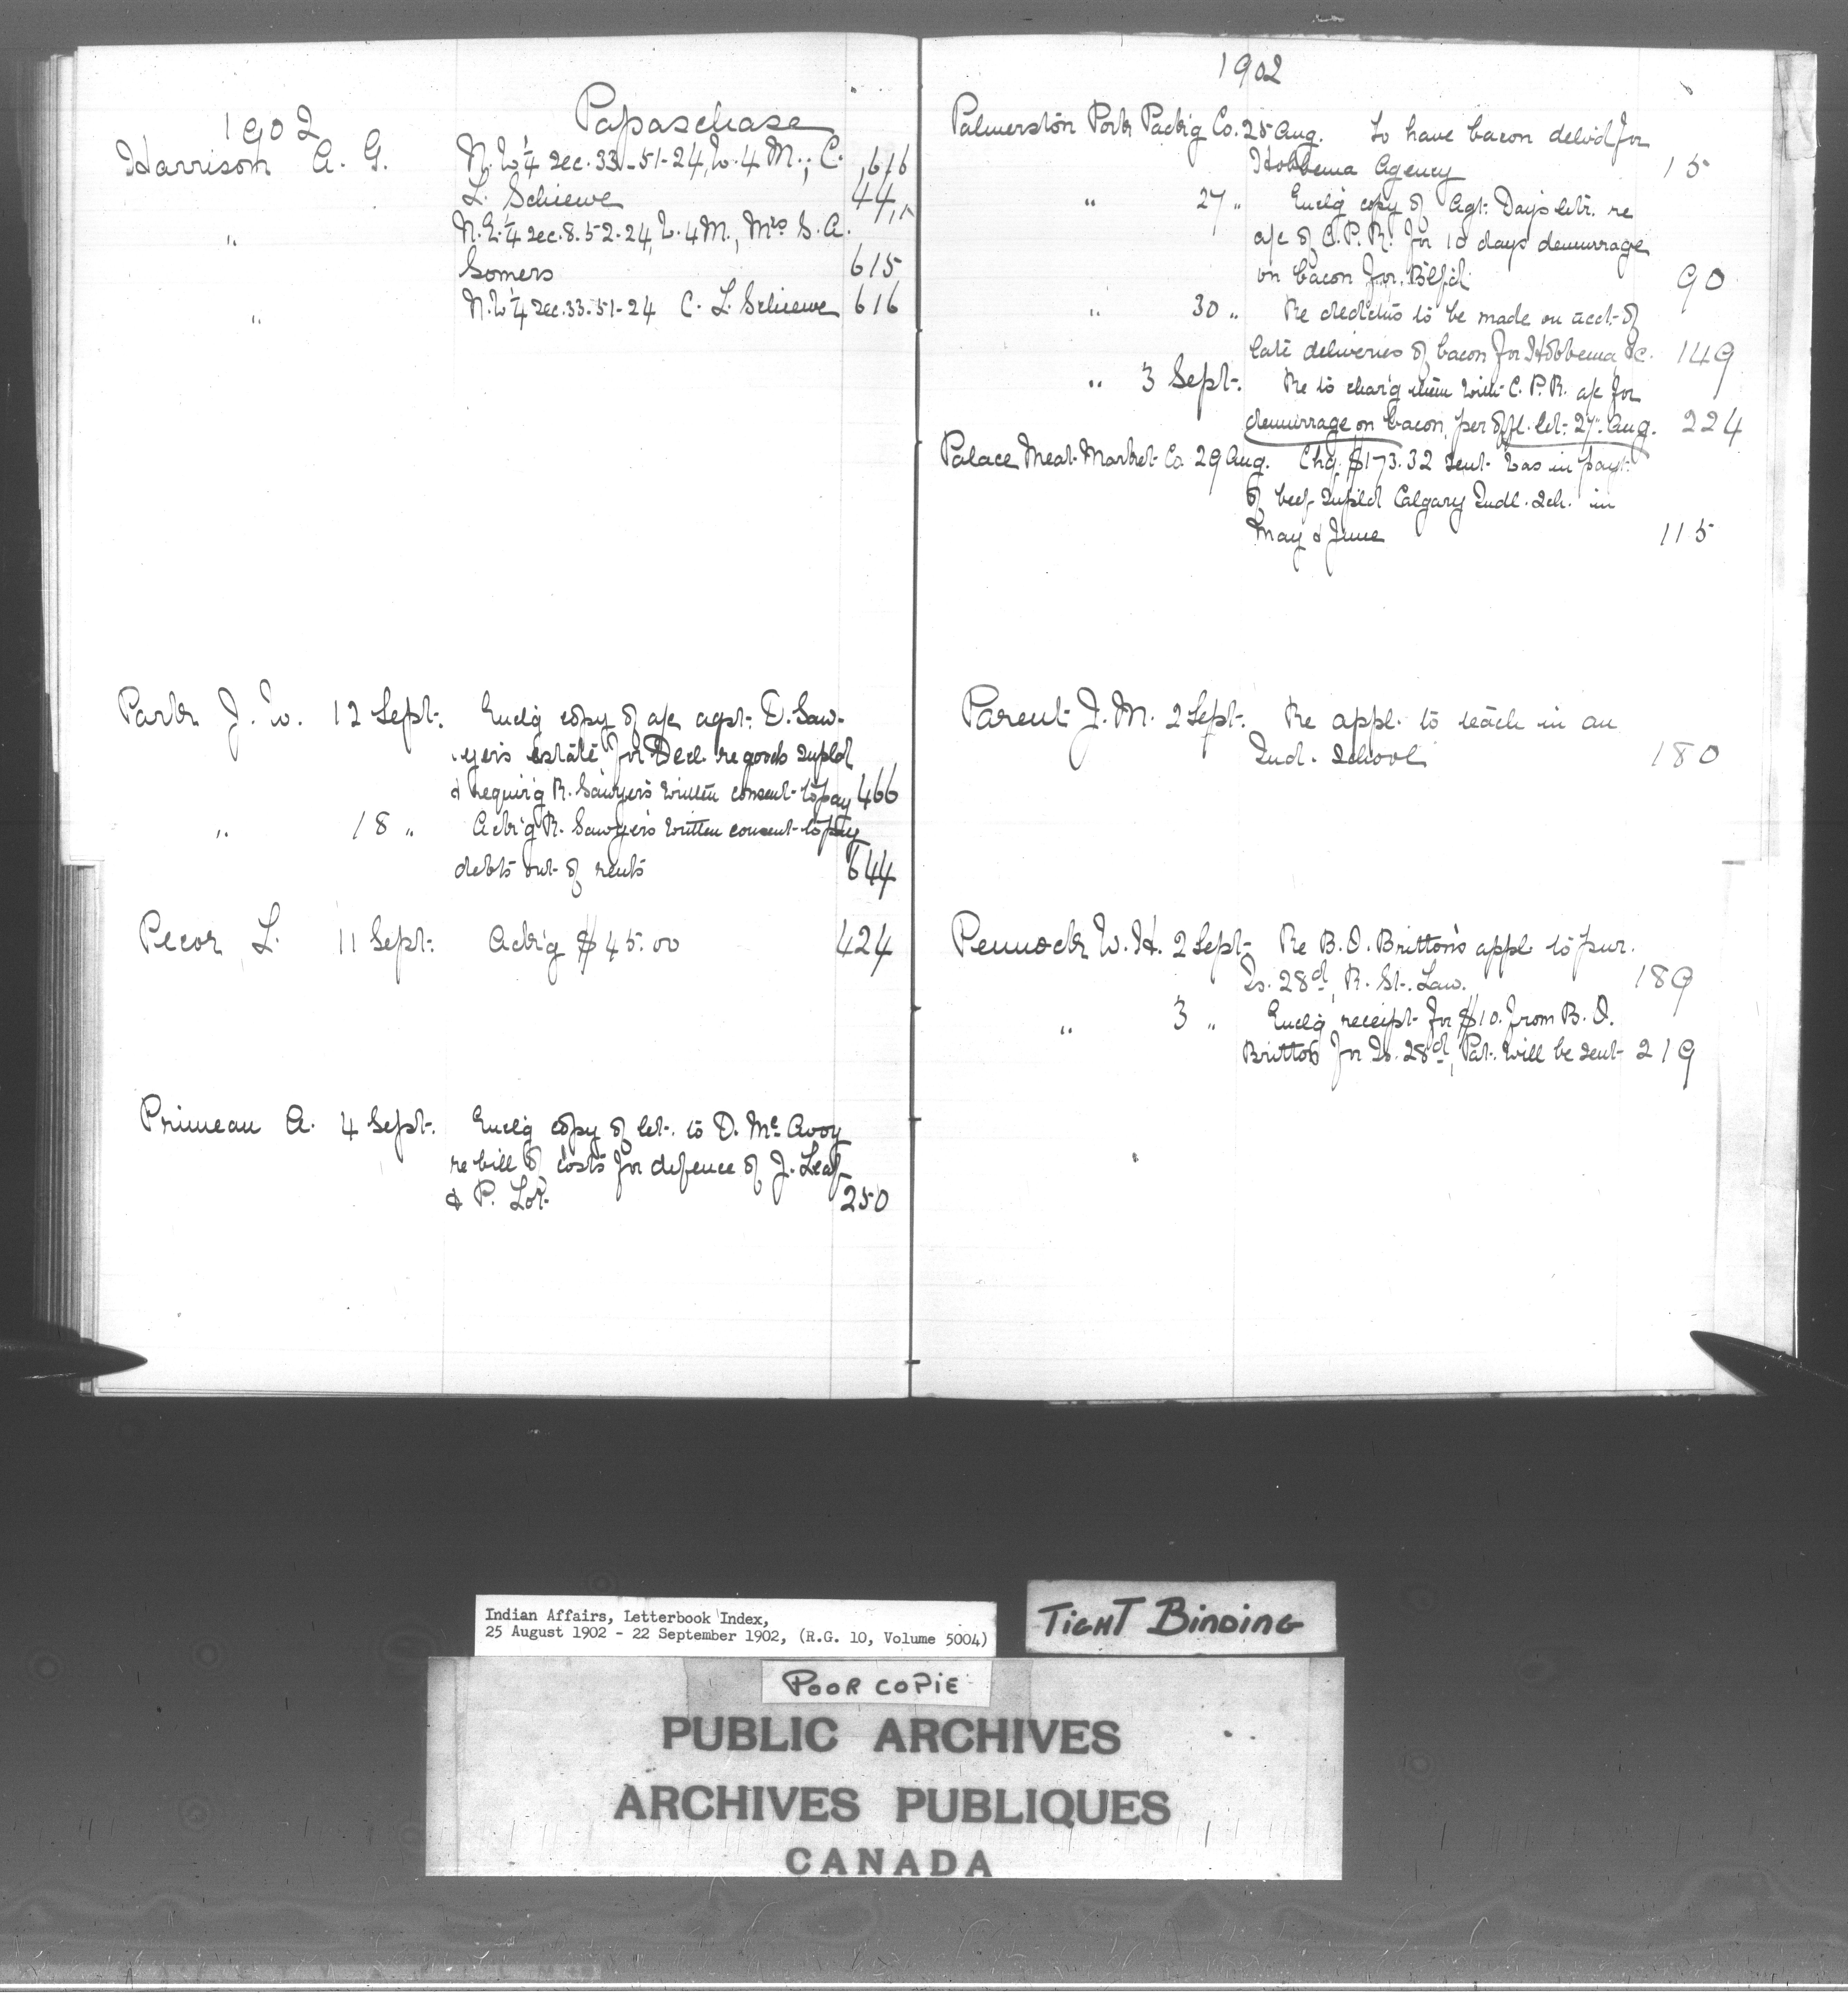 1902
Papaschase
Harrison A. G. N.W¼ Sec. 33-51-24, W. 4 M.; C. 616
L. Schiewe 44
" N.E.¼ Sec. 8. 52-24, W. 4 M., Mrs S. A.
Somers 615
" N.W¼ Sec. 33-51-24 C. L. Schiewe 616
Park J. W. 12 Sept. Encl'g copy of a/c agst. E. Saw-
yer's estate for Decl. re goods suppld
& requir'g R. Sawyer's written consent to pay 466
" 18 " Ack'g R. Sawyer's written consent to pay
debts out of rents 644
Pecor L. 11 Sept. Ack'g $45.00 424
Primeau A. 4 Sept. Encl'g copy of let. to D. McAvoy
re bill of costs for defence of J. Leaf
& P. Lot. 250
1902
Palmerston Pork Pack'g Co. 25 Aug. To have bacon deliv'd for
Hobbema Agency 15
" 27 " Encl'g copy of Agt. Day's letr. re
a/c of C.P.R. for 10 days demurrage
on bacon for B'lf'd 90
" 30 " Re deduct'ns to be made on acct. of
late deliveries of bacon for Hobbema &c. 149
" 3 Sept. Re to charg'g them with C.P.R. a/c for
demurrage on bacon, per offl. let. 27 Aug. 224
Palace Meat Market Co. 29 Aug. Chq. $173.32 sent was in payt.
of beef suppl'd Calgary Indl. Sch. in
May & June 115
Parent J. M. 2 Sept. Re appl. to teach in an
Ind. School 180
Pennock W. H. 2 Sept. Re B. O. Britton's appl. to pur.
Is. 28d, R. St. Law. 189
" 3 " Encl'g receipt for $10. from B. O.
Britton for Is. 28d, Pat. will be sent 219
Indian Affairs, Letterbook Index,
25 August 1902 - 22 September 1902, (R.G. 10, Volume 5004)
TIGHT BINDING
POOR COPIE
PUBLIC ARCHIVES
ARCHIVES PUBLIQUES
CANADA